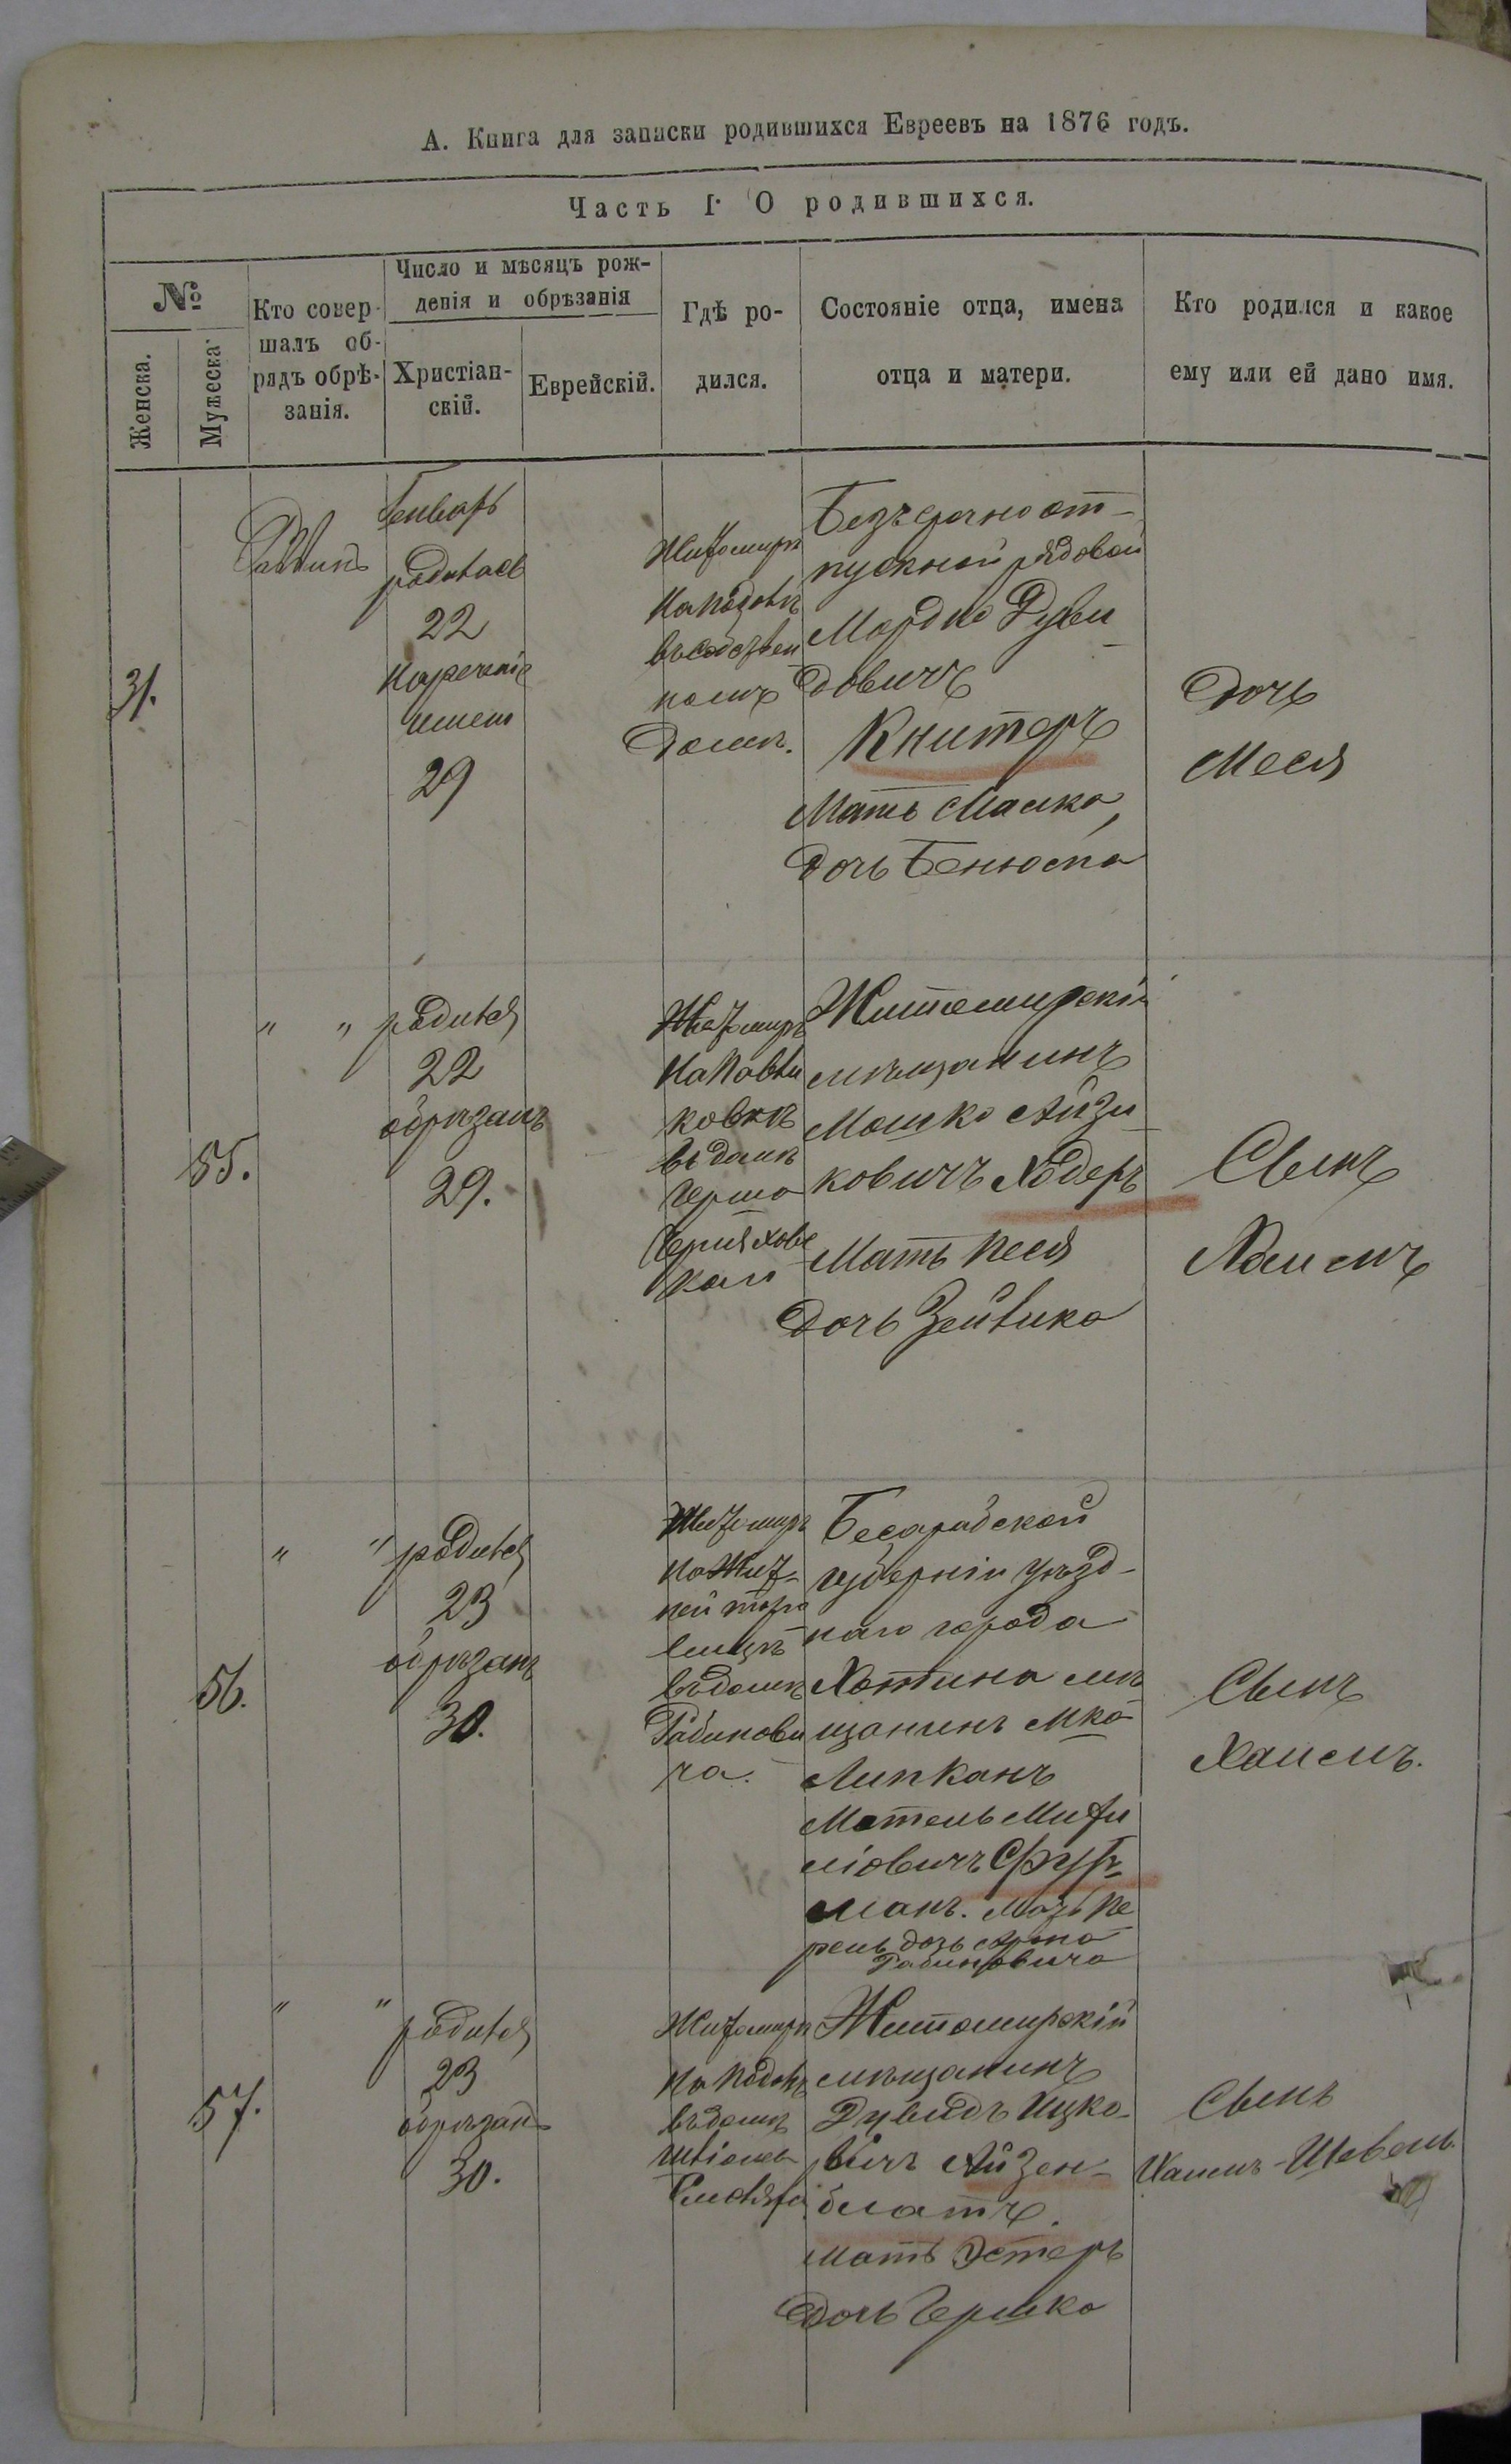 А. Книга для записки родившихся Евреевъ на 1876 годъ.
Часть I. О родившихся.
№
Женска.
Мужеска.
Кто совер-
шалъ об-
рядъ обрѣ-
занія.
Число и мѣсяцъ рож-
денія и обрѣзанія
Христіан-
скій.
Еврейскій.
Гдѣ ро-
дился.
Состояніе отца, имена
отца и матери.
Кто родился и какое
ему или ей дано имя.
31.
Раввинъ
Генварь
родилась
22
Наречение
имени
29
Житомиръ
на Подолѣ
въ собствен
номъ
домѣ.
Безсрочноот-
пускной рядовой
Мордко Дуви
довичъ
Книтеръ
Мать Малка,
дочь Бенюма
Дочь
Меся
55.
" "
родился
22
обрѣзанъ
29.
Житомиръ
въ домѣ
Герша
Житомирскій
мѣщанинъ
Мошко Айзи
ковичъ Ходеръ
Мать Песя
дочь Зейвика
Сынъ
Хаимъ
56.
" "
родился
23
обрѣзанъ
30.
Житомиръ
въ домѣ
Рабинови
ча.
Бесарабской
губерніи уѣзд-
наго города
Хотина мѣ
щанинъ мка
Липканъ
Мотель
Фур
манъ. Мать Пе
рель дочь Арона
Рабиновича
Сынъ
Хаимъ.
57.
" "
родился
23
обрѣзанъ
30.
Житомиръ
на Подолѣ
въ домѣ
Житомирскій
мѣщанинъ
Дувидъ Ицко-
вичъ Айзен-
блатъ.
Мать Эстеръ
дочь Гершка
Сынъ
Хаимъ-Шевель.